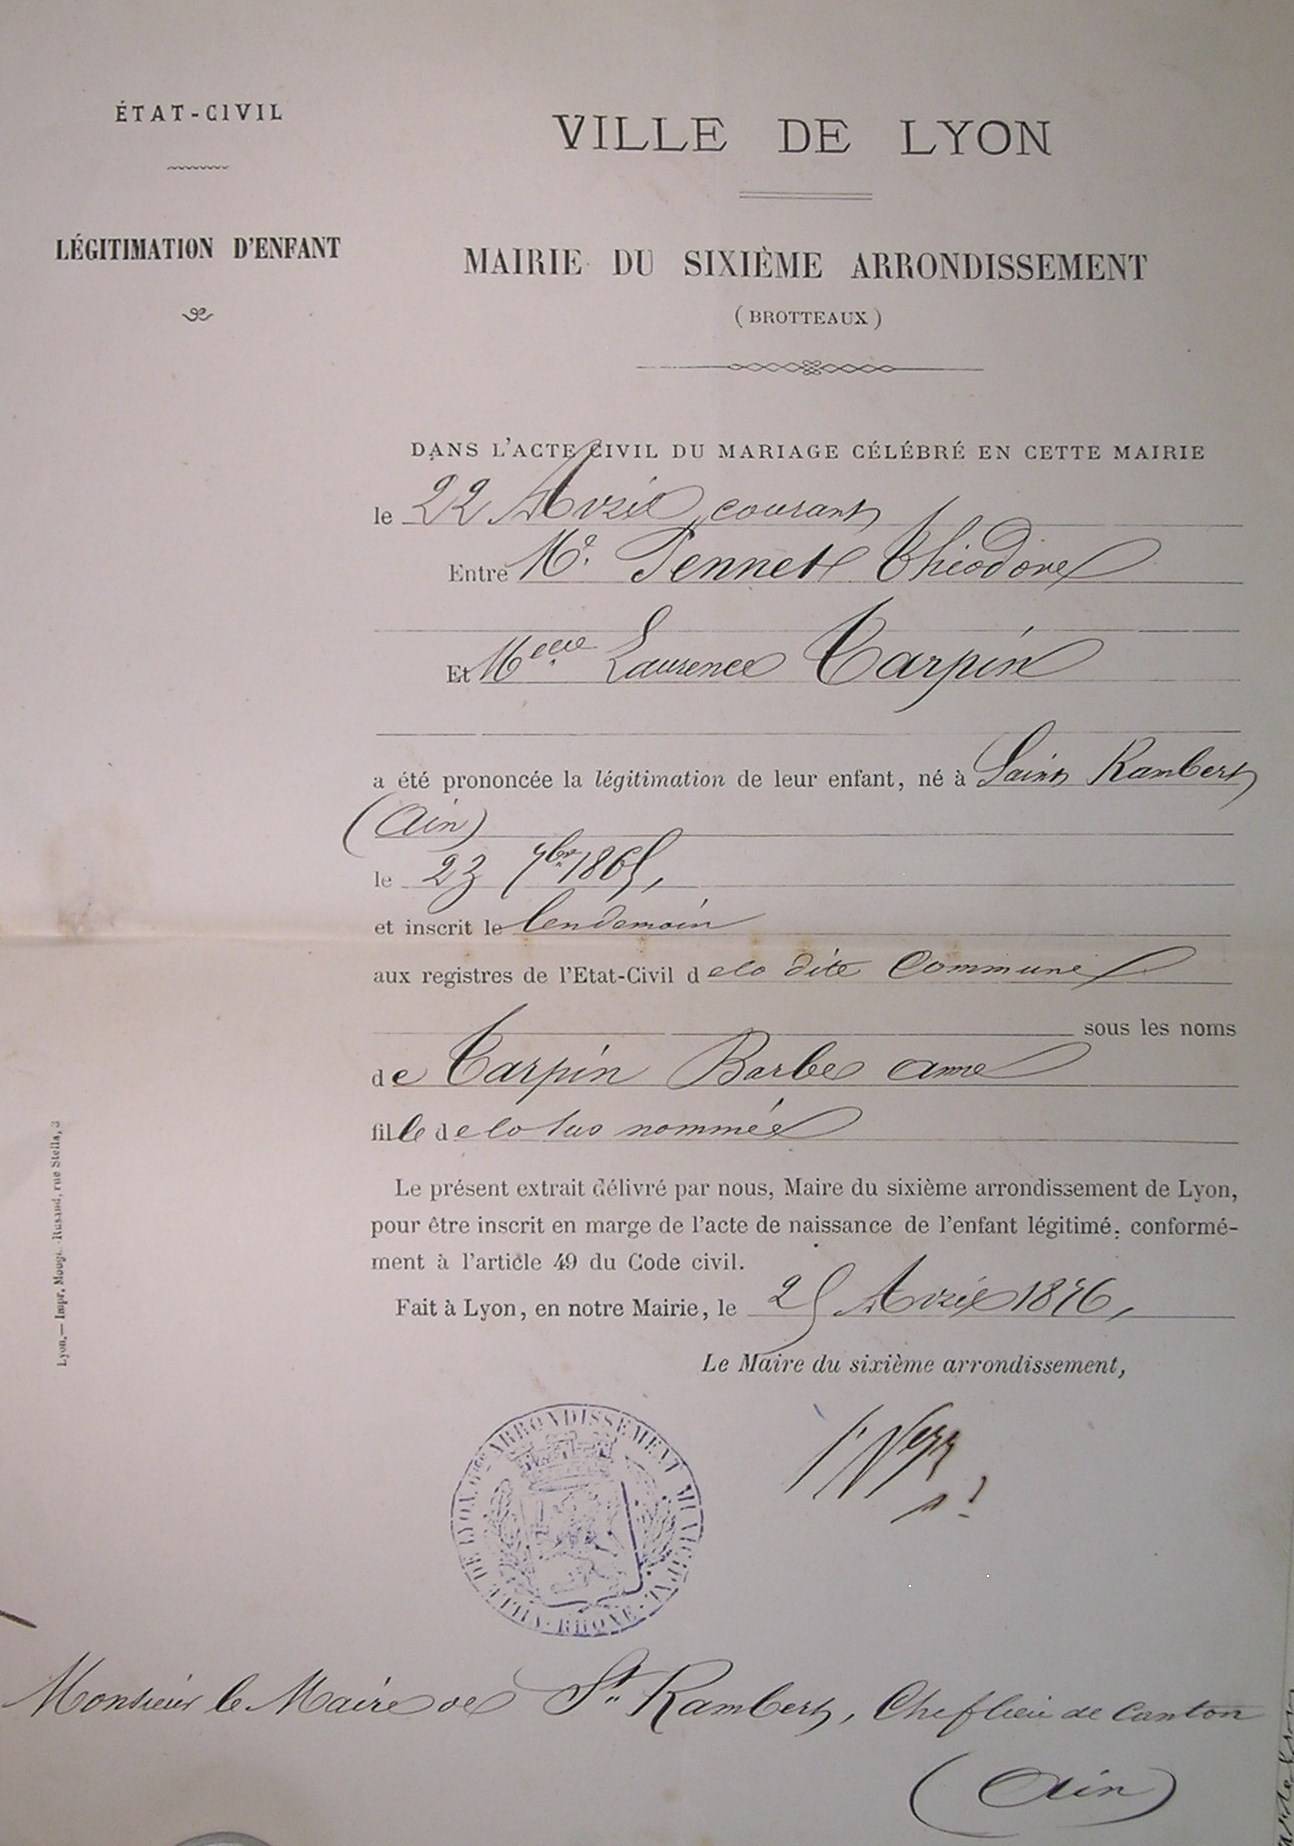 ÉTAT-CIVIL
LÉGITIMATION D'ENFANT
VILLE DE LYON
MAIRIE DU SIXIÈME ARRONDISSEMENT
(BROTTEAUX)
DANS L'ACTE CIVIL DU MARIAGE CÉLÉBRÉ EN CETTE MAIRIE
le 22 Avril courant
Entre Mr. Pennet Théodore
Et Melle Laurence Tarpin
a été prononcée la légitimation de leur enfant, né à Saint Rambert
(Ain)
le 23 7bre 1865,
et inscrit le lendemain
aux registres de l'Etat-Civil de la dite Commune
sous les noms
de Tarpin Barbe anne
fille de la sus nommée
Le présent extrait délivré par nous, Maire du sixième arrondissement de Lyon,
pour être inscrit en marge de l'acte de naissance de l'enfant légitimé, conformé-
ment à l'article 49 du Code civil.
Fait à Lyon, en notre Mairie, le 25 Avril 1876,
Le Maire du sixième arrondissement,
VILLE DE LYON ARRONDISSEMENT MUNICIPAL RHÔNE
Monsieur le Maire de St. Rambert, Chef lieu de Canton
(Ain)
Lyon.— Impr. Mougin-Rusand, rue Stella, 3